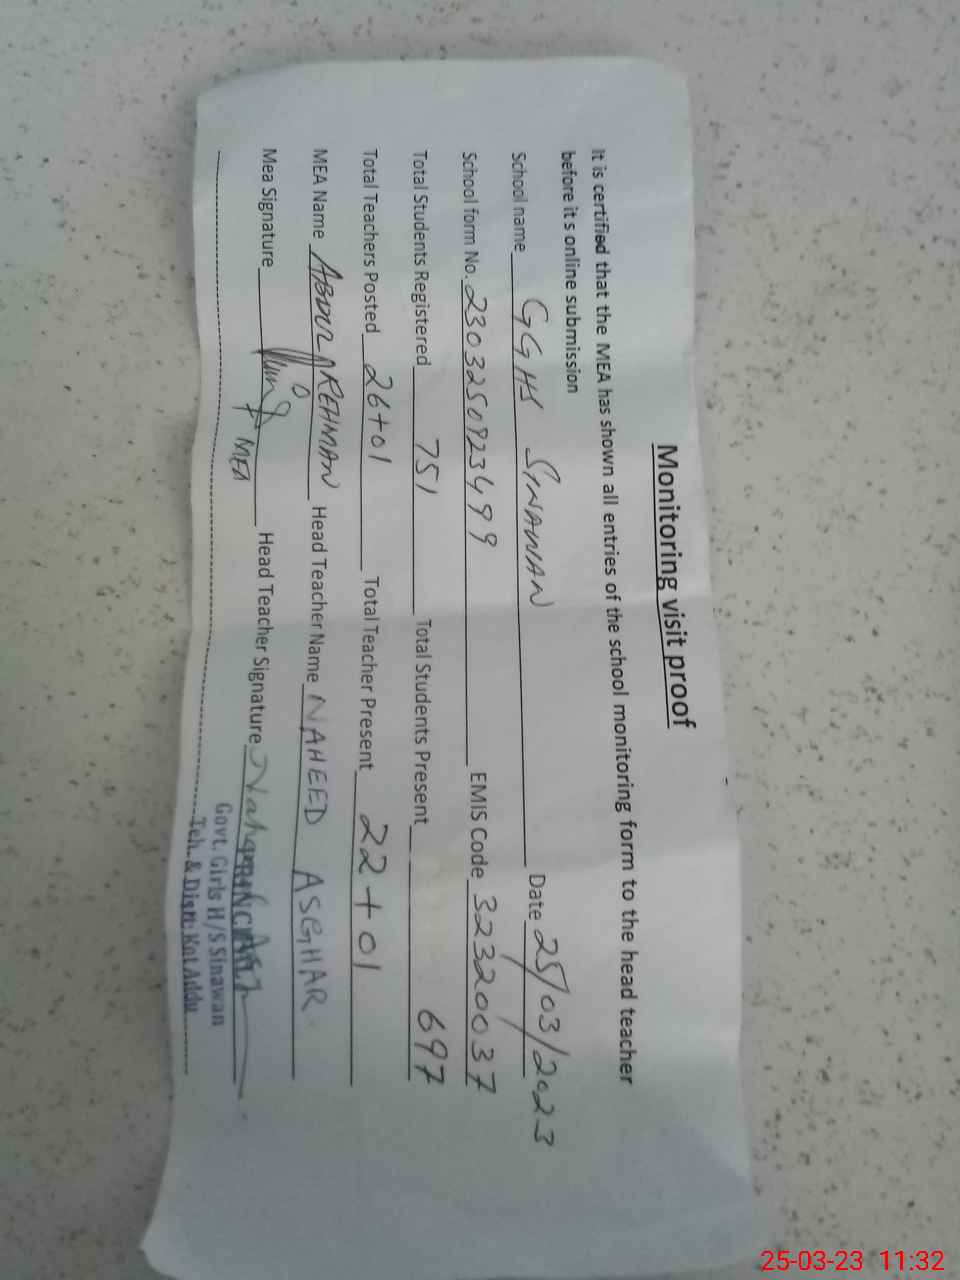 Monitoring visit proof
It is certified that the MEA has shown all entries of the school monitoring form to the head teacher
before it s online submission
School name GGHS SINAWAN Date 25/03/2023
School form No. 2303250923499 EMIS Code 32320037
Total Students Registered 751 Total Students Present 697
Total Teachers Posted 26+01 Total Teacher Present 22+01
MEA Name ABDUL REHMAN Head Teacher Name NAHEED ASGHAR
Mea Signature MEA Head Teacher Signature
PRINCIPAL
Govt. Girls H/S Sinawan
Teh. & Distt: Kot Addu
25-03-23 11:32